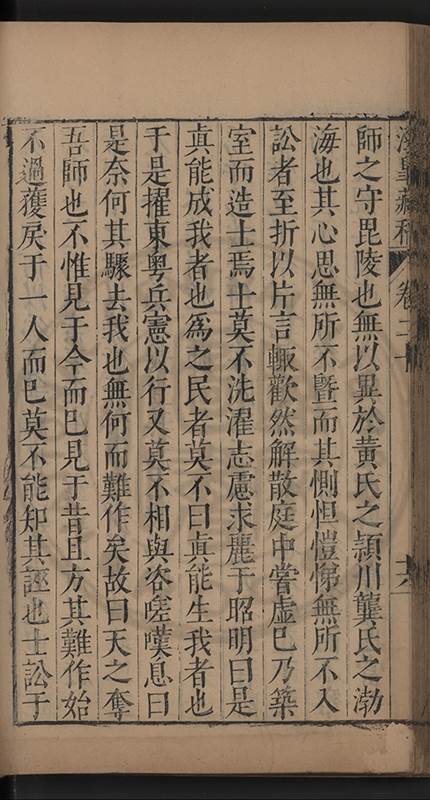 卷二十
師之守毘陵也無以異於黃氏之頴川龔氏之渤
海也其心思無所不曁而其惻怛愷悌無所不入
訟者至折以片言輙歡然解散庭中嘗虛已乃築
室而造士焉士莫不洗濯志慮求麗于昭明曰是
眞能成我者也爲之民者莫不曰眞能生我者也
于是擢東粵兵憲以行又莫不相與咨嗟嘆息曰
是奈何其驟去我也無何而難作矣故曰天之奪
吾師也不惟見于今而巳見于昔且方其難作始
不過獲戾于一人而巳莫不能知其誣也士訟于